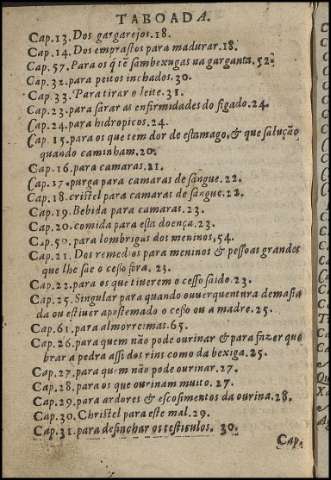 TABOADA.
Cap.13. Dos gargarejos.18.
Cap.14. Dos emprastos para madurar.18.
Cap.57. Para os q̃ tẽ sambexugas na garganta.52.
Cap.32. para peitos inchados.30.
Cap.33. Para tirar o leite.31.
Cap.23. para sarar as enfirmidades do figado.24.
Cap.24. para hidropicos.24.
Cap 15. para os que tem dor de estamago, & que salução
quando caminham.20.
Cap.16. para camaras.21.
Cap.17. purga para camaras de sangue.22.
Cap.18. cristel para camaras de sangue.22.
Cap.19. Bebida para camaras.23.
Cap.20. comida para esta doença.23.
Cap.50. para lombrigas dos meninos,54.
Cap.21. Dos remedios para meninos & pessoas grandes
que lhe sae o cesso fora.23.
Cap.22. para os que tiuerem o cesso saido.23.
Cap.25. Singular para quando ouuer quentura demasia
da ou estiuer apostemado o cesso ou a madre.25.
Cap.61. para almorreimas.65.
Cap.26. para quem não pode ourinar & para fazer que
brar a pedra assi dos rins como da bexiga.25.
Cap.27. para quem não pode ourinar.27.
Cap.28. para os que ourinam muito.27.
Cap.29. para ardores & escosimentos da ourina.28.
Cap.30. Christel para este mal.29.
Cap.31. para desinchar os testiculos. 30.
Cap.